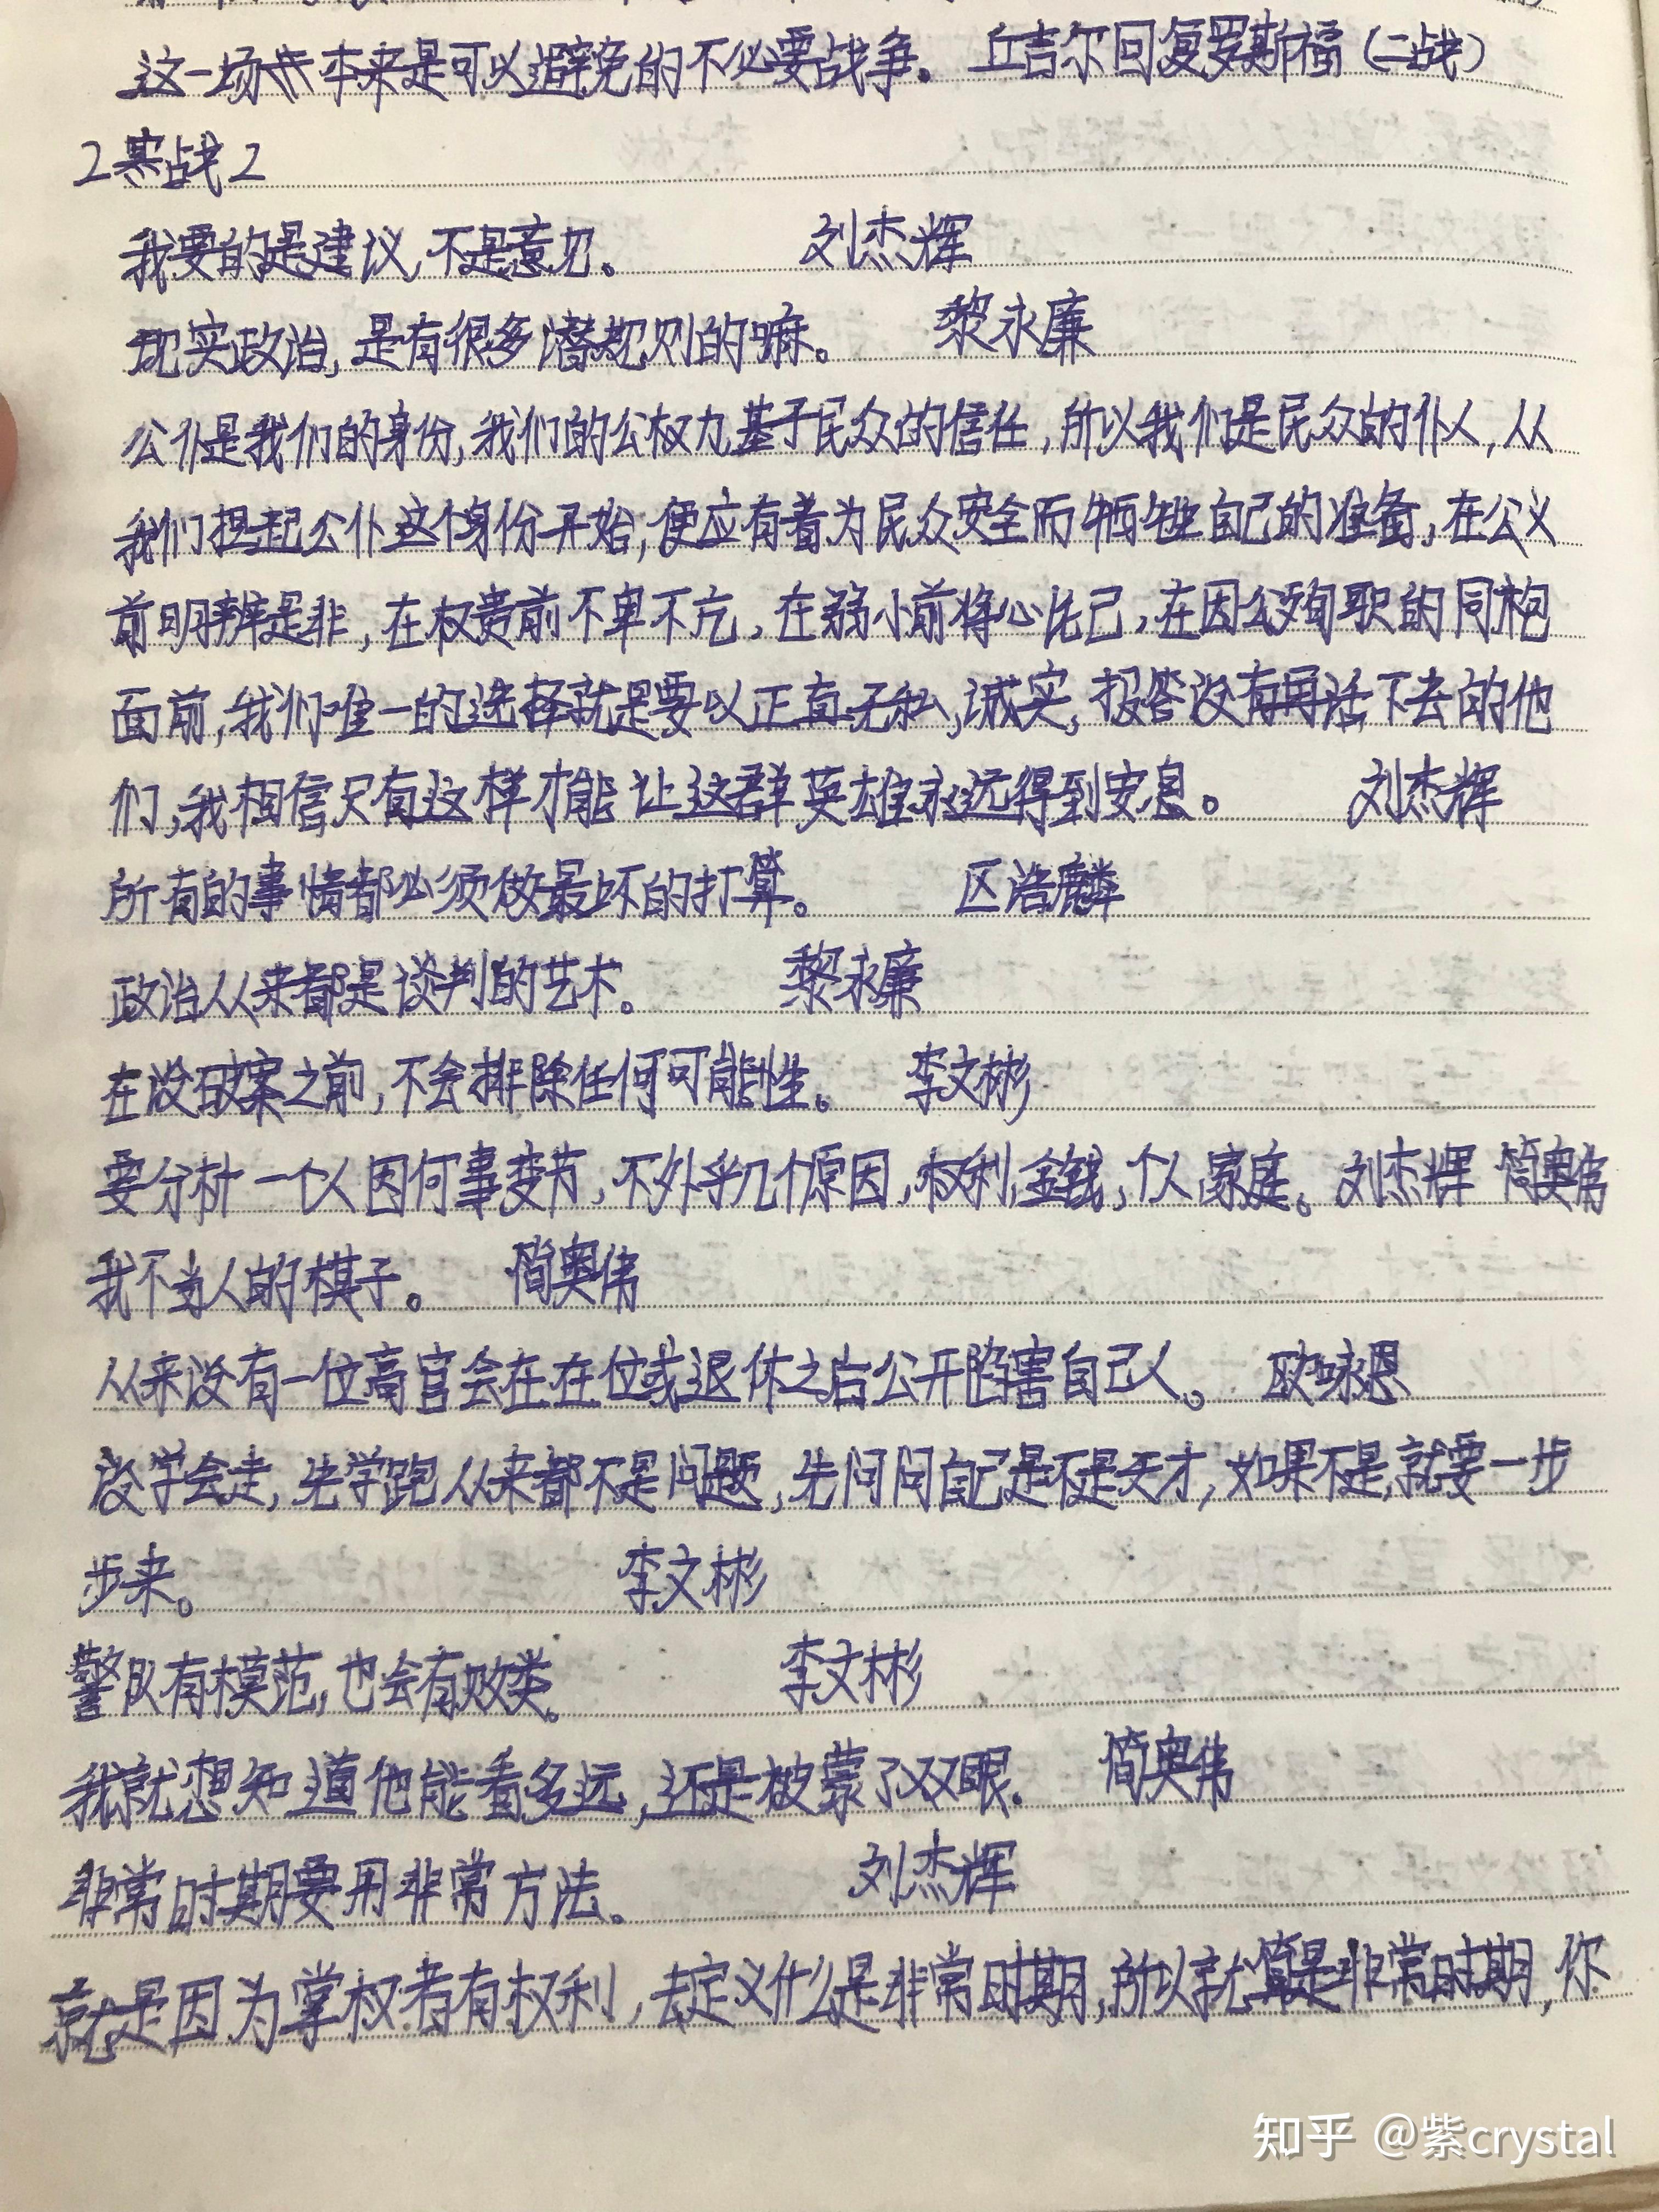 这一场本来是可以避免的不必要战争。 丘吉尔回复罗斯福（二战）
2寒战2
我要的是建议,不是意见。 刘杰辉
现实政治,是有很多潜规则的嘛。 黎永廉
公仆是我们的身份,我们的公权力基于民众的信任,所以我们是民众的仆人,从
我们担起公仆这个身份开始,便应有着为民众安全而牺牲自己的准备,在公义
前明辨是非,在权贵前不卑不亢,在弱小前将心比己,在因公殉职的同袍
面前,我们唯一的选择就是要以正直无私,诚实,报答没有再活下去的他
们,我相信只有这样才能让这群英雄永远得到安息。 刘杰辉
所有的事情都必须做最坏的打算。 区浩麟
政治从来都是谈判的艺术。 黎永廉
在没破案之前,不会排除任何可能性。 李文彬
要分析一个人因何事变节,不外乎几个原因,权利,金钱,个人,家庭。刘杰辉 简奥伟
我不当人的棋子。 简奥伟
从来没有一位高官会在在位或退休之后公开陷害自己人。 欧咏恩
没学会走,先学跑从来都不是问题,先问问自己是不是天才,如果不是,就要一步
步来。 李文彬
警队有模范,也会有败类。 李文彬
我就想知道他能看多远,还是被蒙了双眼. 简奥伟
非常时期要用非常方法。 刘杰辉
就是因为掌权者有权利,去定义什么是非常时期,所以就算是非常时期,你
知乎 @紫crystal